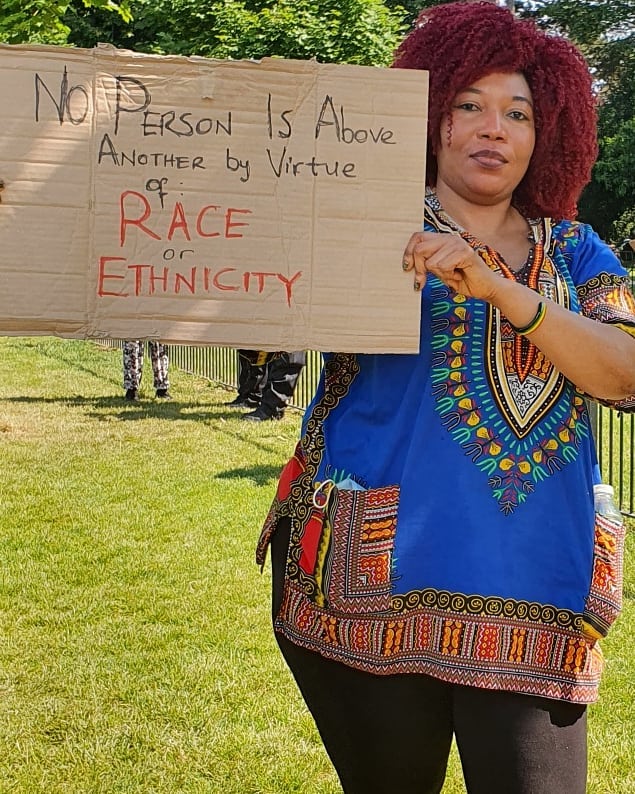 No Person Is Above
Another by Virtue
of:
RACE
or
ETHNICITY